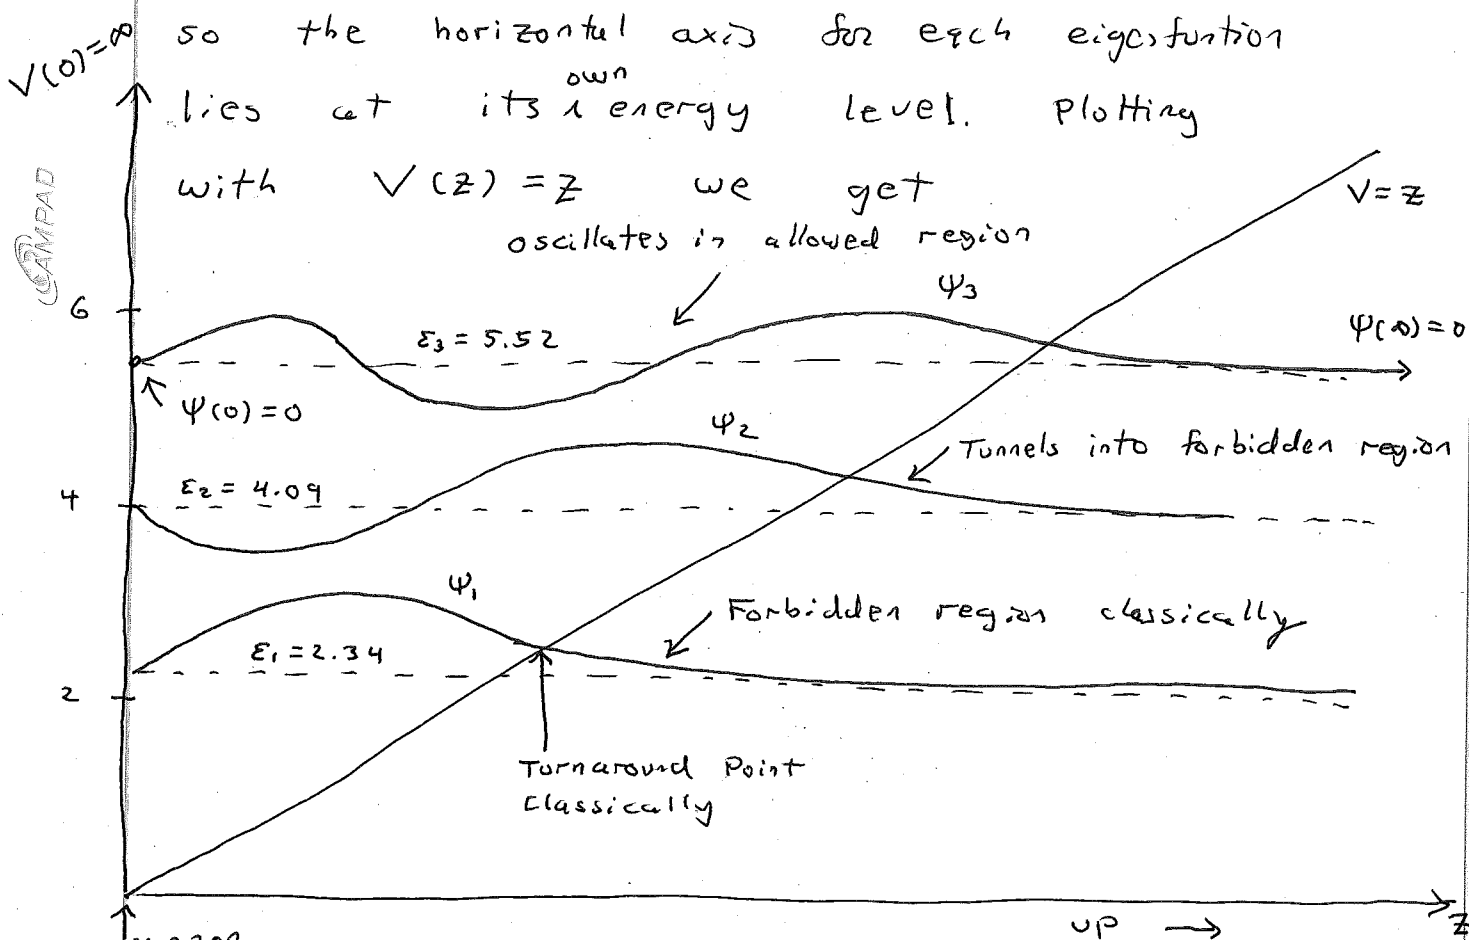 V(0)=∞
so the horizontal axis for each eigenfuntion
own
lies at its ∧ energy level. Plotting
with V(z) = z we get
CAMPAD
V = z
oscillates in allowed region
ψ3
6
ε3 = 5.52
ψ(∞) = 0
ψ(0) = 0
ψ2
Tunnels into forbidden region
4
ε2 = 4.09
ψ1
Forbidden region classically
ε1 = 2.34
2
Turnaround Point
Classically
up →
z